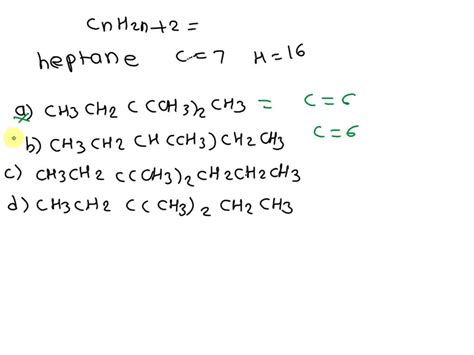 CnH2n+2 =
heptane C=7 H=16
a) CH3 CH2 C (CH3)2 CH3 = C=6
b) CH3 CH2 CH (CH3) CH2 CH3 C=6
c) CH3CH2 C(CH3)2CH2CH2CH3
d) CH3CH2 C(CH3)2 CH2 CH3